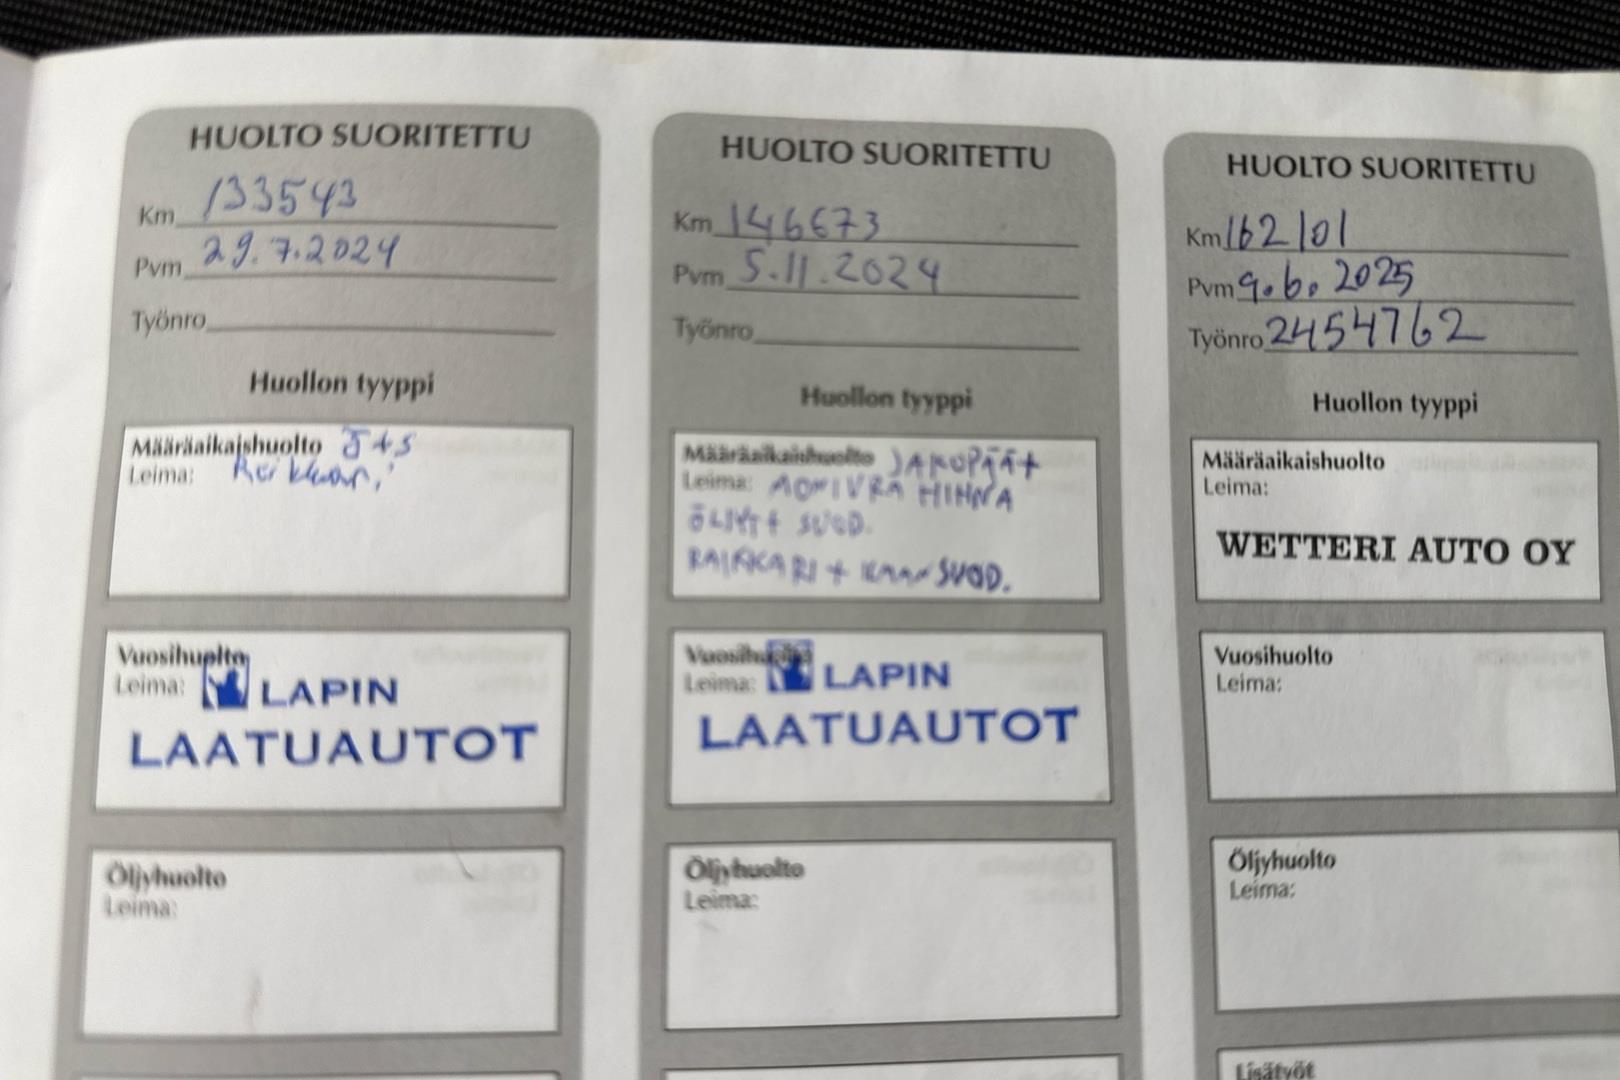 HUOLTO SUORITETTU
Km 133543
Pvm 29.7.2024
Työnro
Huollon tyyppi
Määräaikaishuolto Ö+S
Leima:
Vuosihuolto
Leima: LAPIN
LAATUAUTOT
Öljyhuolto
Leima:
HUOLTO SUORITETTU
Km 146673
Pvm 5.11.2024
Työnro
Huollon tyyppi
Määräaikaishuolto JAKOPÄÄ+
Leima: MONIURA HIHNA
ÖLJYT+ SUOD.
RAIKKARI + SUOD.
Vuosihuolto
Leima: LAPIN
LAATUAUTOT
Öljyhuolto
Leima:
HUOLTO SUORITETTU
Km 162101
Pvm 9.6.2025
Työnro 2454762
Huollon tyyppi
Määräaikaishuolto
Leima:
WETTERI AUTO OY
Vuosihuolto
Leima:
Öljyhuolto
Leima:
Lisätyöt